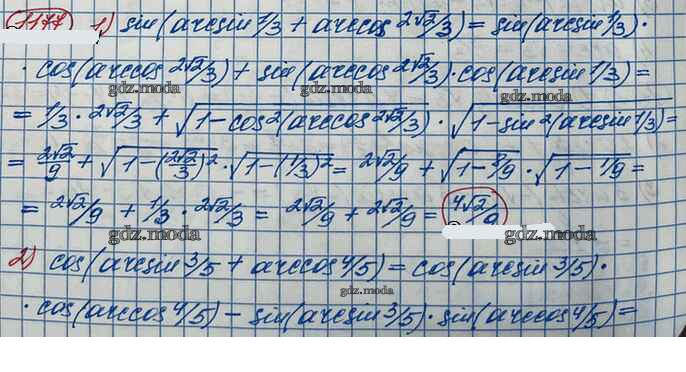 1177 1) sin(arcsin 1/3 + arccos 2√2/3) = sin(arcsin 1/3) ·
· cos(arccos 2√2/3) + sin(arccos 2√2/3) · cos(arcsin 1/3) =
gdz.moda gdz.moda gdz.moda
= 1/3 · 2√2/3 + √(1-cos²(arccos 2√2/3)) · √(1-sin²(arcsin 1/3)) =
= 2√2/9 + √(1-(2√2/3)²) · √(1-(1/3)²) = 2√2/9 + √(1-8/9) · √(1-1/9) =
= 2√2/9 + 1/3 · 2√2/3 = 2√2/9 + 2√2/9 = 4√2/9
gdz.moda gdz.moda
2) cos(arcsin 3/5 + arccos 4/5) = cos(arcsin 3/5) ·
gdz.moda
· cos(arccos 4/5) - sin(arcsin 3/5) · sin(arccos 4/5) =